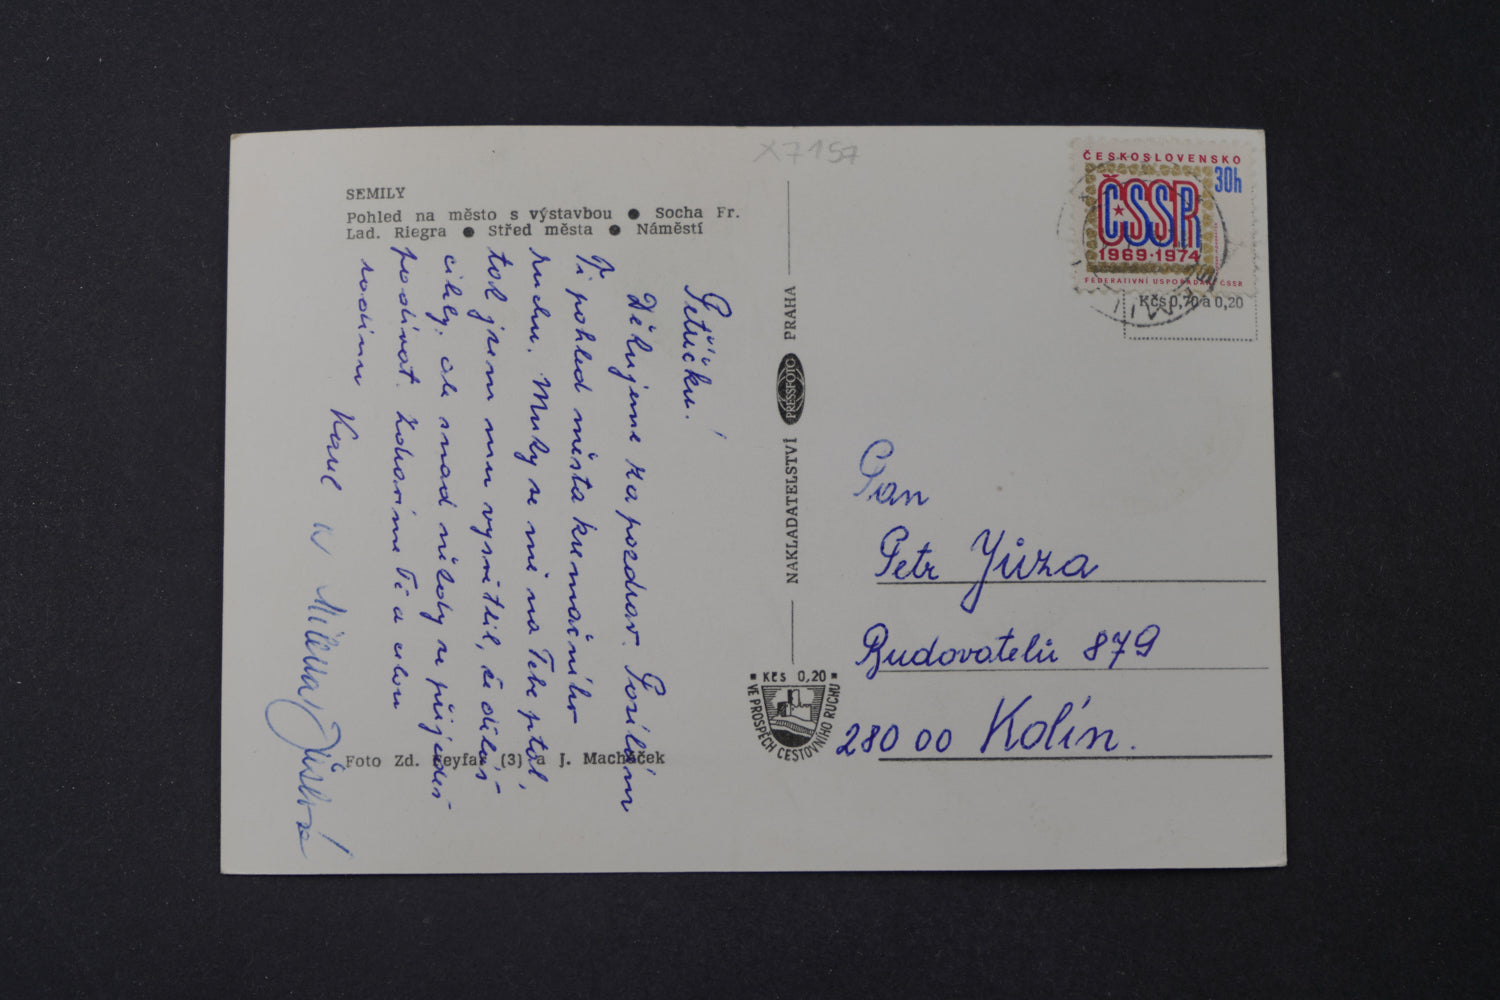 X7157
SEMILY
Pohled na město s výstavbou ● Socha Fr.
Lad. Riegra ● Střed města ● Náměstí
Petříčku!
Děkujeme za pozdrav. Posílám
Ti pohled města kumačního
ruchu. Mirky se mě na Tebe ptal,
tak jsem mu vysvětlil, že děláš
cihly, ale snad někdy se přijedeš
podívat. Zdravíme Ti a celou
rodinu Karel
Foto Zd. Feyfar (3) a J. Macháček
NAKLADATELSTVÍ PRESSFOTO PRAHA
KČS 0,20
VE PROSPĚCH CESTOVNÍHO RUCHU
ČESKOSLOVENSKO
30h
ČSSR
1969·1974
FEDERATIVNÍ USPOŘÁDÁNÍ ČSSR
Kčs 0,70 a 0,20
Pan
Petr Jůza
Budovatelů 879
280 00 Kolín.